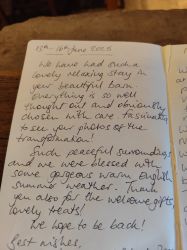 13th - 16th June 2025
We have had such a
lovely relaxing stay in
your beautiful barn.
Everything is so well
thought out and obviously
chosen with care. Fascinating
to see your photos of the
transformation!
Such peaceful surroundings
and we were blessed with
some gorgeous warm English
summer weather. Thank
you also for the welcome gifts
lovely treats!
We hope to be back!
Best wishes,